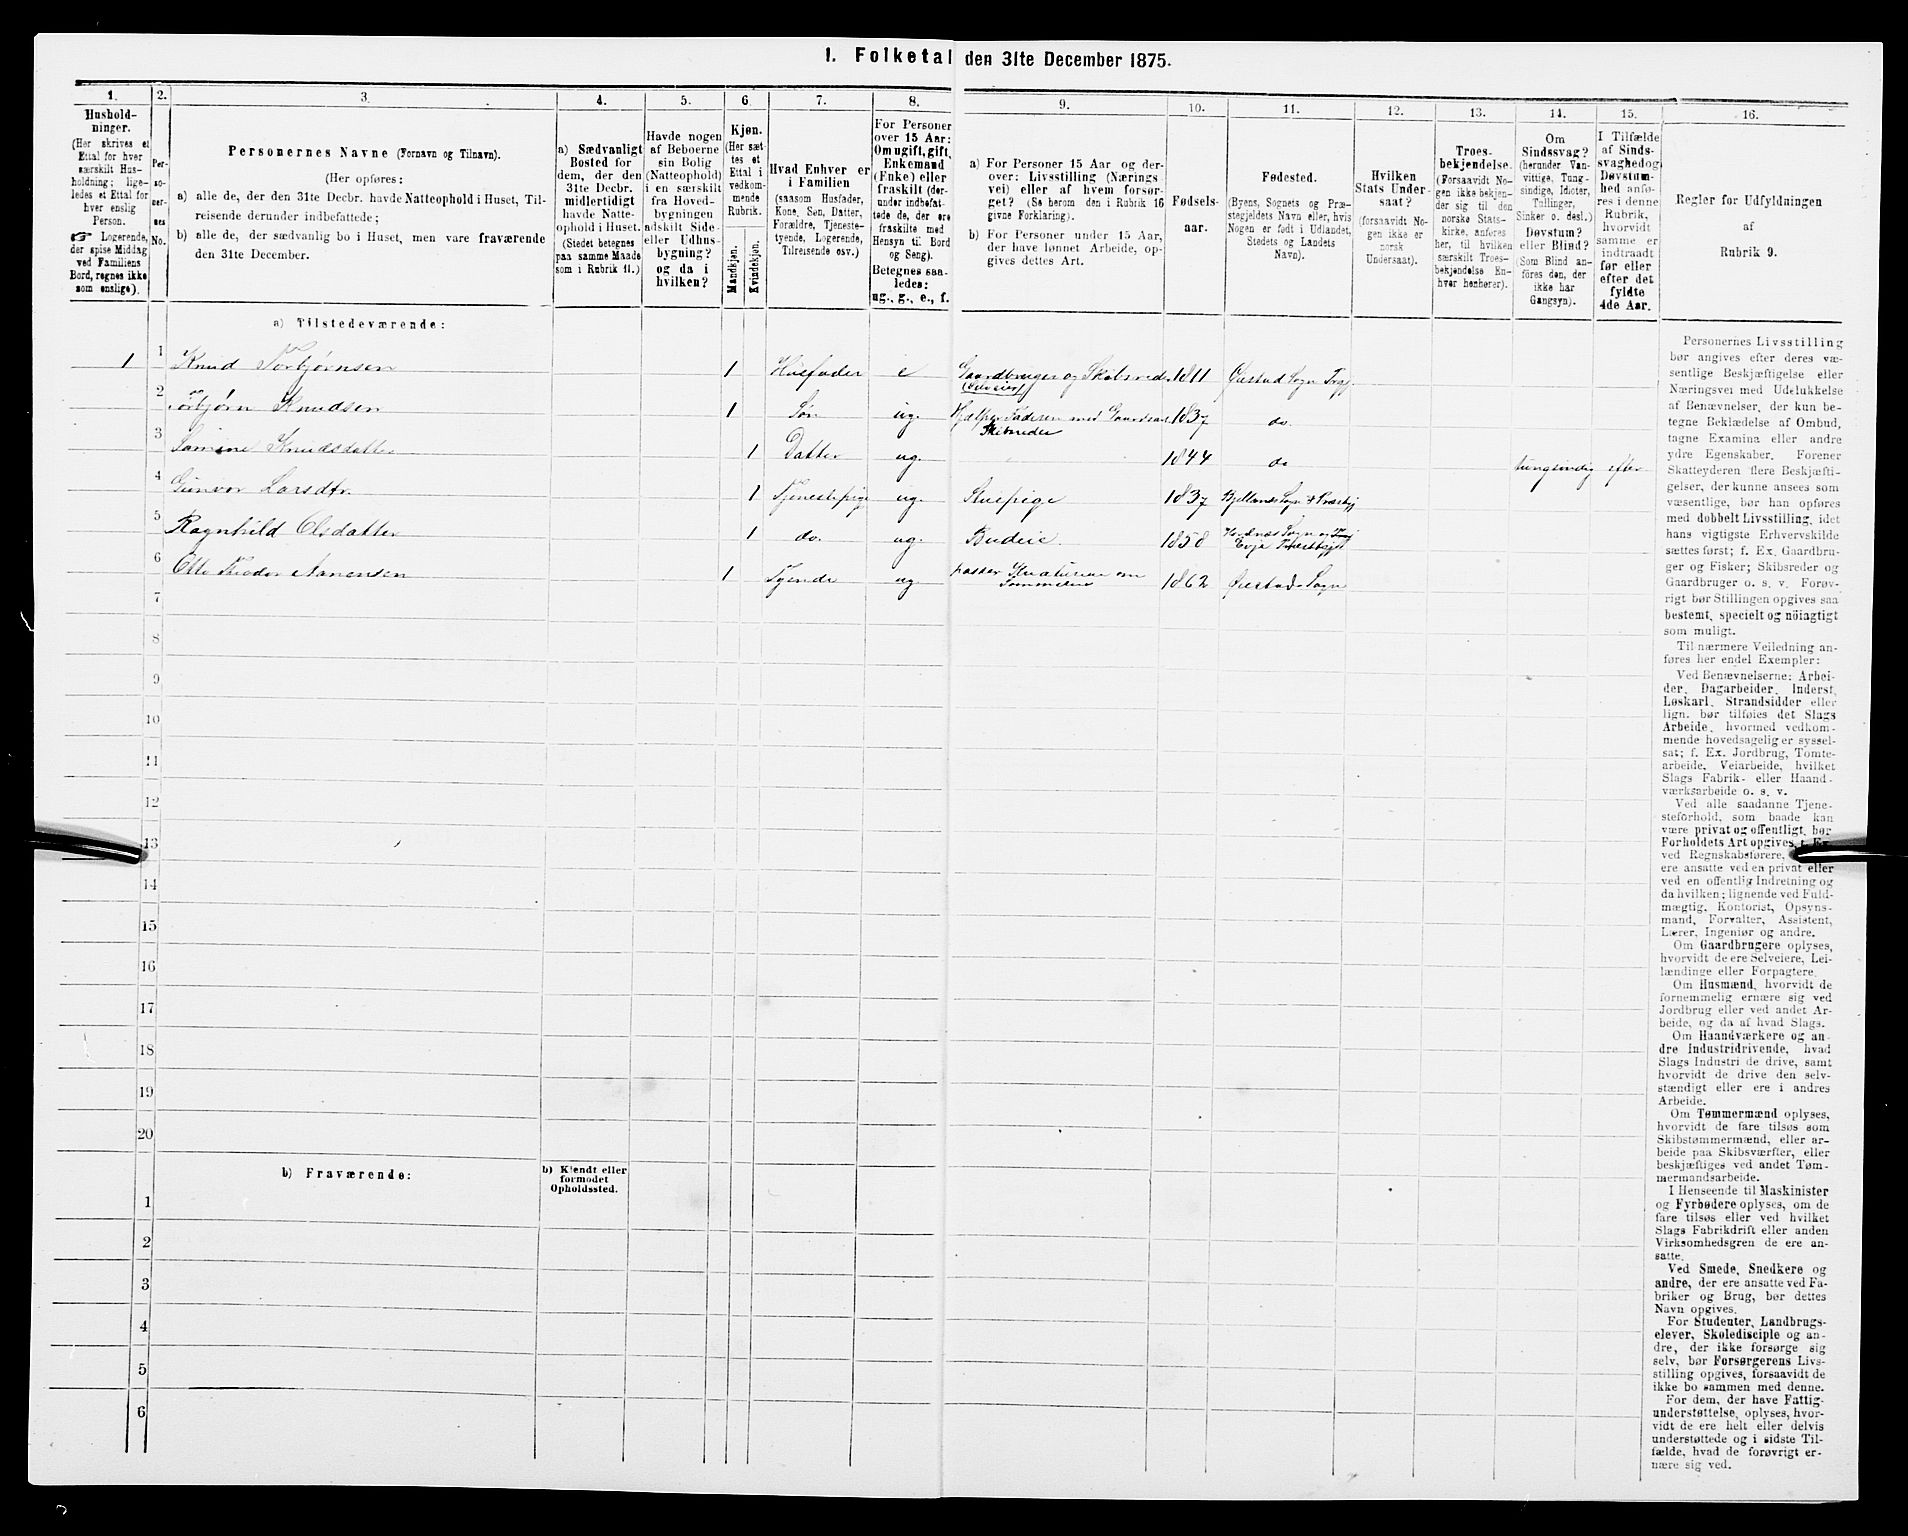 1. Folketal den 31te December 1875.
1.
Hushold-
ninger.
(Her skrives et
Ettal for hver
særskilt Hus-
holdning; lige-
ledes et Ettal for
hver enslig
Person.
☞ Logerende,
der spise Middag
ved Familiens
Bord, regnes ikke
som enslige).
2.
Per-
so-
ner-
nes
No.
3.
Personernes Navne (Fornavn og Tilnavn).
(Her opføres:
a) alle de, der den 31te Decbr. havde Natteophold i Huset, Til-
reisende derunder indbefattede;
b) alle de, der sædvanlig bo i Huset, men vare fraværende
den 31te December.
4.
a) Sædvanligt
Bosted for
dem, der den
31te Decbr.
midlertidigt
havde Natte-
ophold i Huset.
(Stedet betegnes
paa samme Maade
som i Rubrik 11.)
5.
Havde nogen
af Beboerne
sin Bolig
(Natteophold)
i en særskilt
fra Hoved-
bygningen
adskilt Side-
eller Udhus-
bygning?
og da i
hvilken?
6.
Kjøn.
(Her sæt-
tes et
Ettal i
vedkom-
mende
Rubrik.
Mandkjøn.
Kvindekjøn.
7.
Hvad Enhver er
i Familien
(saasom Husfader,
Kone, Søn, Datter,
Forældre, Tjeneste-
tyende, Logerende,
Tilreisende osv.)
8.
For Personer
over 15 Aar:
Om ugift, gift,
Enkemand
(Enke) eller
fraskilt (der-
under indbefat-
tede de, der ere
fraskilte med
Hensyn til Bord
og Seng).
Betegnes saa-
ledes:
ug., g., e., f.
9.
a) For Personer 15 Aar og der-
over: Livsstilling (Nærings
vei) eller af hvem forsør-
get? (Se herom den i Rubrik 16
givne Forklaring).
b) For Personer under 15 Aar,
der have lønnet Arbeide, op-
gives dettes Art.
10.
Fødsels-
aar.
11.
Fødested.
(Byens, Sognets og Præ-
stegjeldets Navn eller, hvis
Nogen er født i Udlandet,
Stedets og Landets
Navn).
12.
Hvilken
Stats Under-
saat?
(forsaavidt No-
gen ikke er
norsk
Undersaat).
13.
Troes-
bekjendelse.
(Forsaavidt No-
gen ikke bekjen-
der sig til den
norske Stats-
kirke, anføres
her, til hvilken
særskilt Troes-
bekjendelse En-
hver henhører).
14.
Om
Sindssvag?
(herunder Van-
vittige, Tung-
sindige, Idioter,
Tullinger,
Sinker o. desl.)
Døvstum?
eller Blind?
(Som Blind an-
føres den, der
ikke har
Gangsyn).
15.
I Tilfælde
af Sinds-
svaghed og
Døvstum-
hed anfø-
res i denne
Rubrik,
hvorvidt
samme er
indtraadt
før eller
efter det
fyldte
4de Aar.
16.
Regler for Udfyldningen
af
Rubrik 9.
a) Tilstedeværende:
1 1 Knud Torbjørnsen 1 Husfader e Gaardbruger og Skibsreder 1811 Øiestad Sogn
(Selveier)
2 Torbjørn Knudsen 1 Søn ug. Hjælper Faderen med Gaardsar. 1837 do.
Skibsreder
3 Samine Knudsdatter 1 Datter ug. 1844 do tungsindig efter
4 Gunvor Larsdtr. 1 Tjenestepige ug. Stuepige 1837
5 Ragnhild Olsdatter 1 do. ug. Budeie 1858 Evje
6 Otto Theodor Aanensen 1 Tyende ug passer Kreaturene om 1862 Øiestad Sogn
Sommeren
7
8
9
10
11
12
13
14
15
16
17
18
19
20
b) Fraværende:
b) Kjendt eller
formodet
Opholdssted.
1
2
3
4
5
6
Personernes Livsstilling
bør angives efter deres væ-
sentlige Beskjæftigelse eller
Næringsvei med Udelukkelse
af Benævnelser, der kun be-
tegne Beklædelse af Ombud,
tagne Examina eller andre
ydre Egenskaber. Forener
Skatteyderen flere Beskjæfti-
gelser, der kunne ansees som
væsentlige, bør han opføres
med dobbelt Livsstilling, idet
hans vigtigste Erhvervskilde
sættes først; f. Ex. Gaardbru-
ger og Fisker; Skibsreder og
Gaardbruger o. s. v. Forøv-
rigt bør Stillingen opgives saa
bestemt, specielt og nöiagtigt
som muligt.
Til nærmere Veiledning an-
føres her endel Exempler:
Ved Benævnelserne: Arbei-
der, Dagarbeider, Inderst,
Løskarl, Strandsidder eller
lign. bør tilføies det Slags
Arbeide, hvormed vedkom-
mende hovedsagelig er syssel-
sat; f. Ex. Jordbrug, Tomte-
arbeide, Veiarbeide, hvilket
Slags Fabrik- eller Haand-
værksarbeide o. s. v.
Ved alle saadanne Tjene-
steforhold, som baade kan
være privat og offentligt, bør
Forholdets Art opgives, f. Ex.
ved Regnskabsførere,
ere ansatte ved en privat eller
ved en offentlig Indretning og
da hvilken; lignende ved Fuld-
mægtig, Kontorist, Opsyns-
mand, Forvalter, Assistent,
Lærer, Ingeniør og andre.
Om Gaardbrugere oplyses,
hvorvidt de ere Selveiere, Lei-
lændinge eller Forpagtere.
Om Husmænd, hvorvidt de
fornemmelig ernære sig ved
Jordbrug eller ved andet Ar-
beide, og da af hvad Slags.
Om Haandværkere og an-
dre Industridrivende, hvad
Slags Industri de drive, samt
hvorvidt de drive den selv-
stændigt eller ere i andres
Arbeide.
Om Tømmermænd oplyses,
hvorvidt de fare tilsøs som
Skibstømmermænd, eller ar-
beide paa Skibsværfter, eller
beskjæftiges ved andet Tøm-
mermandsarbeide.
I Henseende til Maskinister
og Fyrbødere oplyses, om de
fare tilsøs eller ved hvilket
Slags Fabrikdrift eller anden
Virksomhedsgren de ere an-
satte.
Ved Smede, Snedkere og
andre, der ere ansatte ved Fa-
briker og Brug, bør dettes
Navn opgives.
For Studenter, Landbrugs-
elever, Skoledisciple og an-
dre, der ikke forsørge sig
selv, bør Forsørgerens Livs-
stilling opgives, forsaavidt de
ikke bo sammen med denne.
For dem, der have Fattig-
understøttelse, oplyses, hvor-
vidt de ere helt eller delvis
understøttede og i sidste Til-
fælde, hvad de forøvrigt er-
nære sig ved.